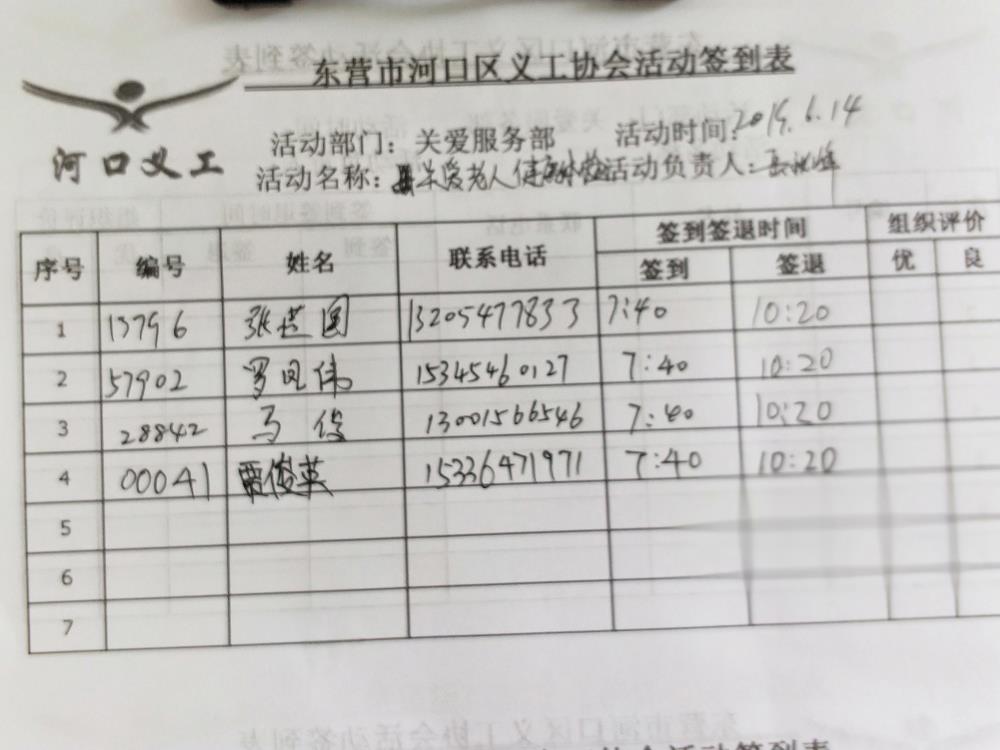 东营市河口区义工协会活动签到表
河口义工
活动部门：关爱服务部 活动时间：2019.6.14
活动名称：关爱老人健康体检 活动负责人：
序号 编号 姓名 联系电话 签到签退时间 组织评价
签到 签退 优 良
1 13796 张 圆 13205477833 7:40 10:20
2 57902 罗凤伟 15345460127 7:40 10:20
3 28842 马俊 13001566546 7:40 10:20
4 00041 贾俊英 15336471971 7:40 10:20
5
6
7